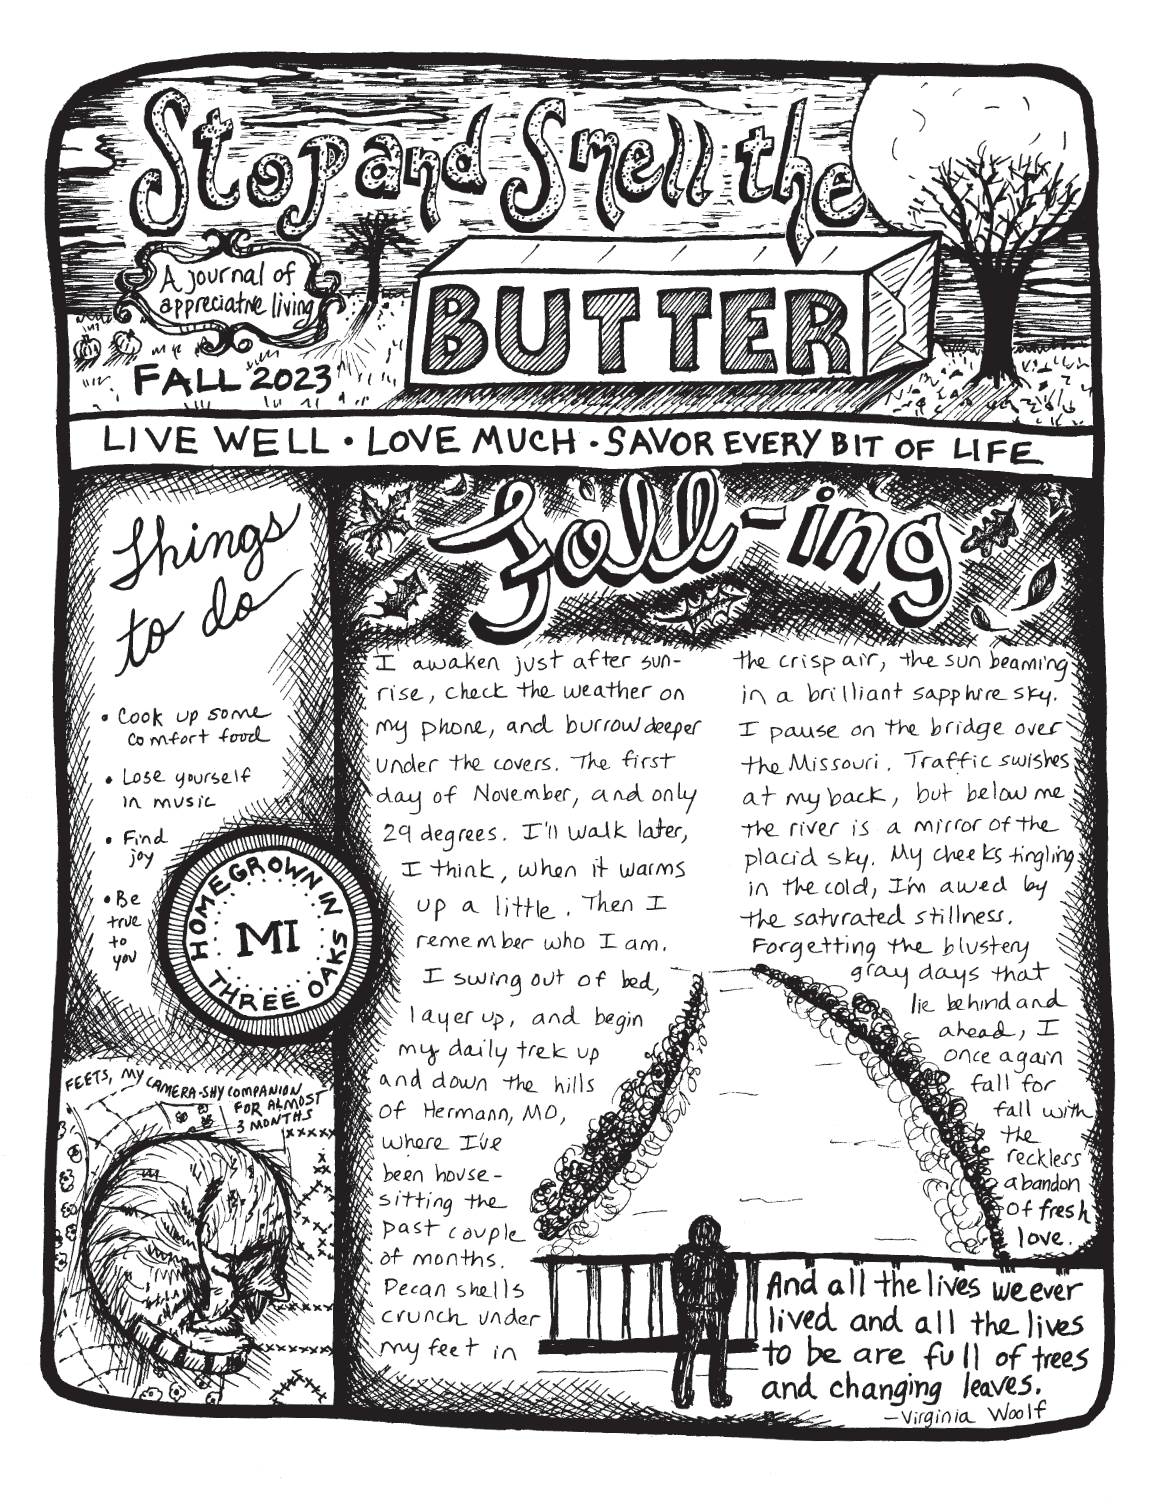 Stop and Smell the
BUTTER
A journal of
appreciative living
FALL 2023
LIVE WELL • LOVE MUCH • SAVOR EVERY BIT OF LIFE
Things
to do
• Cook up some
comfort food
• Lose yourself
in music
• Find
joy
• Be
true
to
you
HOMEGROWN IN
MI
THREE OAKS
FEETS, MY CAMERA-SHY COMPANION
FOR ALMOST
3 MONTHS
Fall-ing
I awaken just after sun-
rise, check the weather on
my phone, and burrow deeper
under the covers. The first
day of November, and only
29 degrees. I'll walk later,
I think, when it warms
up a little. Then I
remember who I am.
I swing out of bed,
layer up, and begin
my daily trek up
and down the hills
of Hermann, MO,
where I've
been house-
sitting the
past couple
of months.
Pecan shells
crunch under
my feet in
the crisp air, the sun beaming
in a brilliant sapphire sky.
I pause on the bridge over
the Missouri. Traffic swishes
at my back, but below me
the river is a mirror of the
placid sky. My cheeks tingling
in the cold, I'm awed by
the saturated stillness.
Forgetting the blustery
gray days that
lie behind and
ahead, I
once again
fall for
fall with
the
reckless
abandon
of fresh
love.
And all the lives we ever
lived and all the lives
to be are full of trees
and changing leaves.
—Virginia Woolf